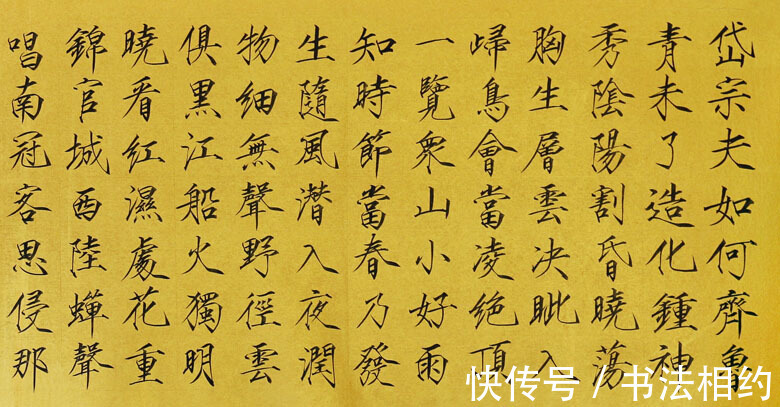 岱宗夫如何齊魯
青未了造化鍾神
秀陰陽割昏曉蕩
胸生層雲決眦入
歸鳥會當凌絕頂
一覽衆山小好雨
知時節當春乃發
生隨風潜入夜潤
物細無聲野徑雲
俱黑江船火獨明
曉看紅濕處花重
錦官城西陸蟬聲
唱南冠客思侵那
快传号 / 书法相约